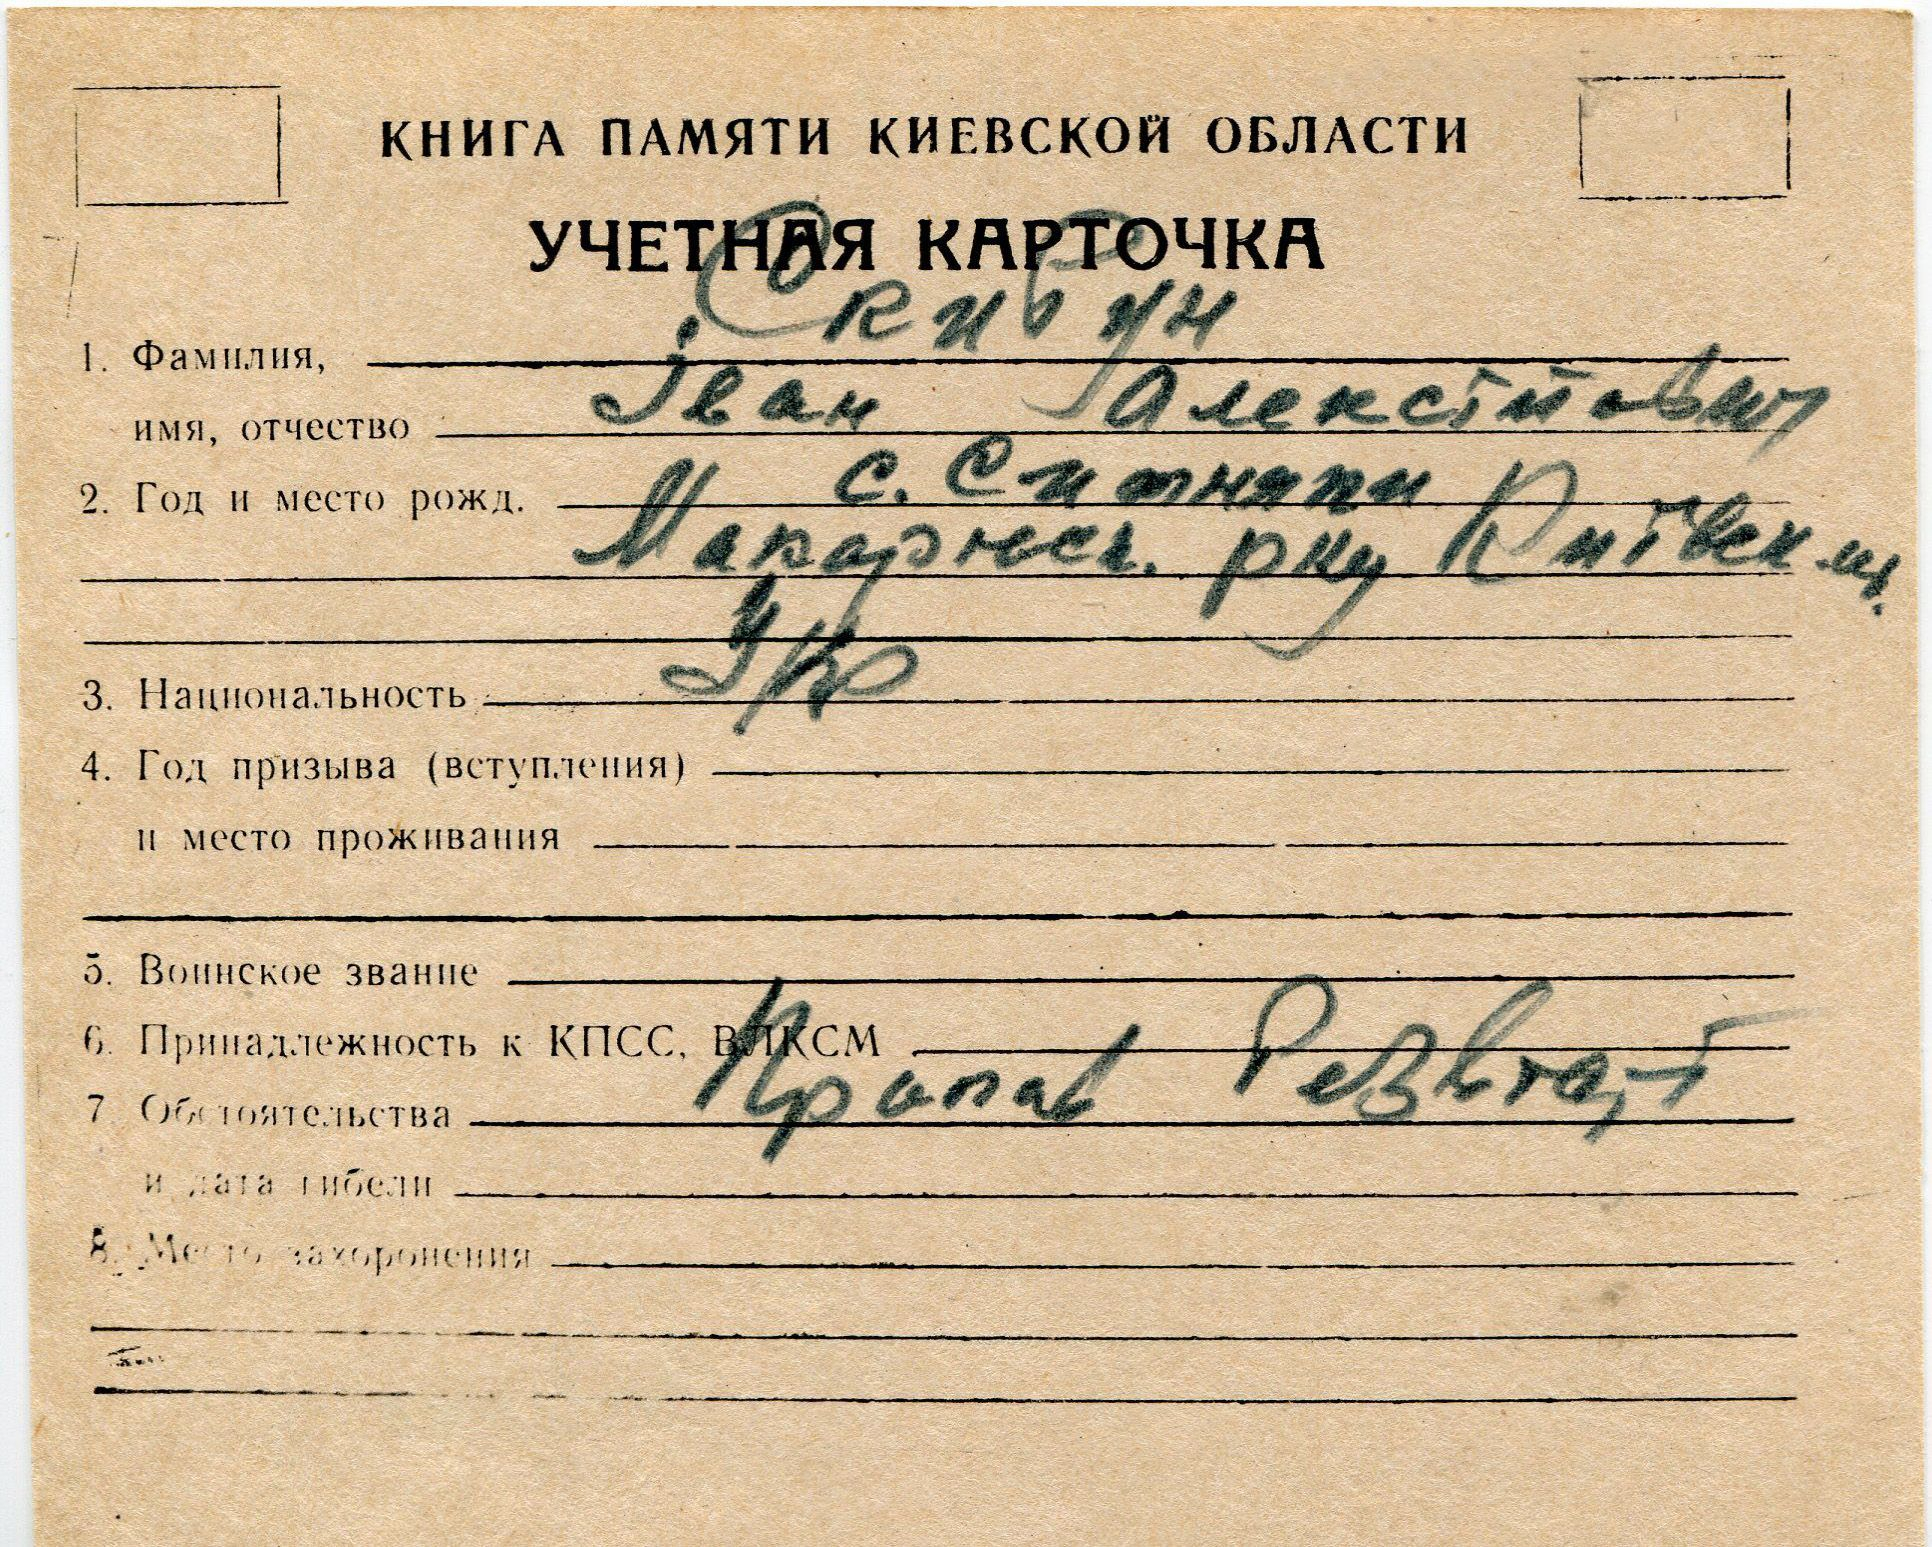 КНИГА ПАМЯТИ КИЕВСКОЙ ОБЛАСТИ
УЧЕТНАЯ КАРТОЧКА
Скибун
1. Фамилия,
Іван Алексійович
имя, отчество
2. Год и место рожд. с. Ситняки
Макарівськ. р-ну Київськ.
Укр
3. Национальность
4. Год призыва (вступления)
и место проживания
5. Воинское звание
6. Принадлежность к КПССС, ВЛКСМ
7. Обстоятельства Пропав
и дата гибели
8. Место захоронения